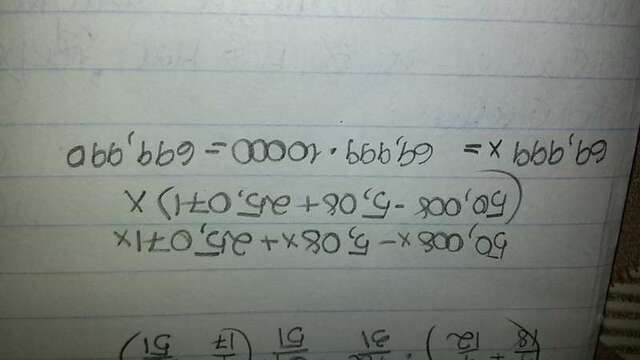 50,008x - 5,08x + 25,071x
(50,008 - 5,08 + 25,071) x
69,999 x = 69,999 · 10000 = 699,990